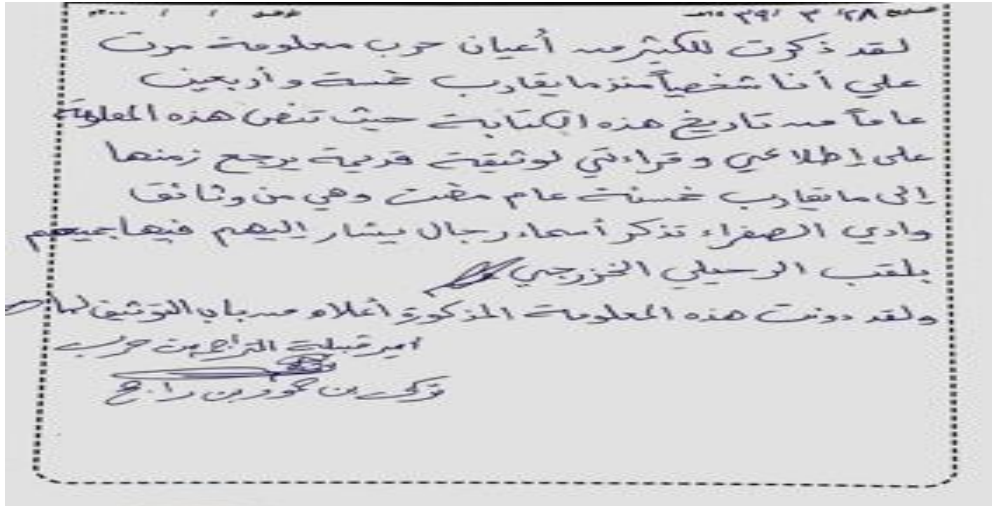 ٢٨ / ٣ / ٣٩
لقد ذكرت للكثير من أعيان حرب معلومة مرت
علي أنا شخصياً منذ ما يقارب خمسة وأربعين
عاماً من تاريخ هذه الكتابة حيث تنص هذه المعلومة
على إطلاعي وقراءتي لوثيقة قديمة يرجع زمنها
إلى ما يقارب خمسة عام مضت وهي من وثائق
وادي الصفراء تذكر أسماء رجال يشار إليهم فيها جميعهم
بلقب الرحيلي الخزرجي
ولقد دونت هذه المعلومة المذكورة أعلاه من باب التوثيق لها
أمير قبيلة من حرب
تركي بن حمود بن راجح